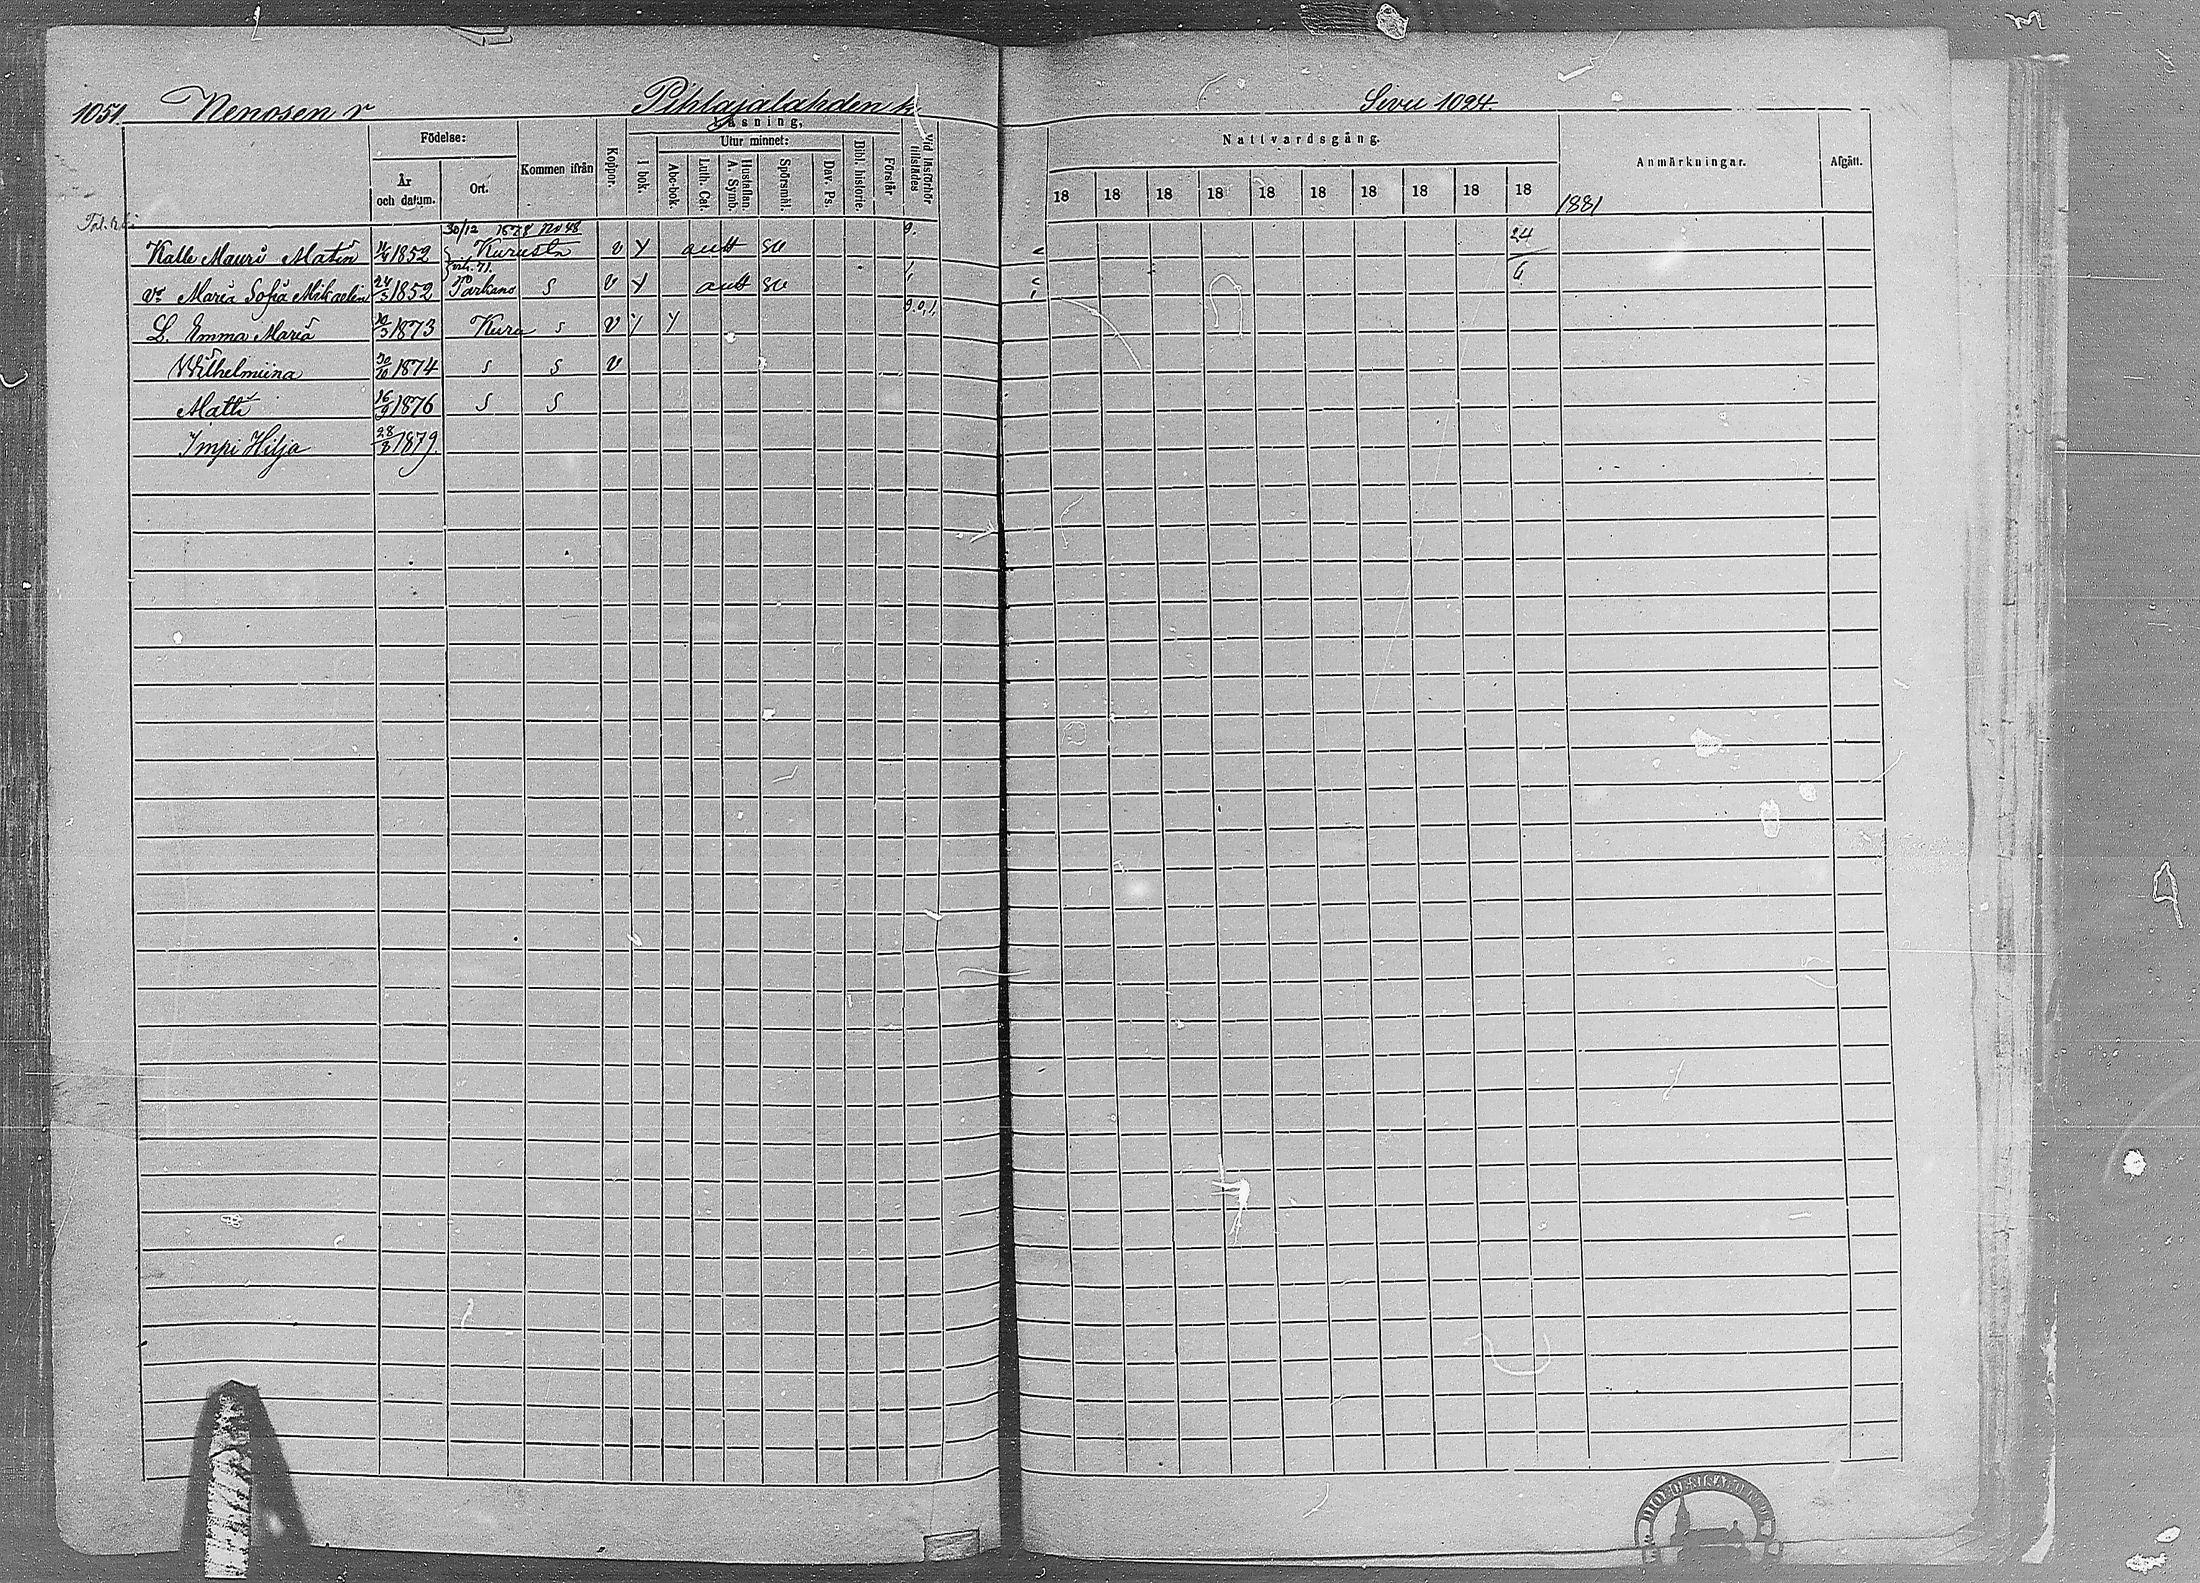 1051. Nenosen r Pihlajalahden k. Sivu 1024.
Läsning, Nattvardsgång. Anmärkningar. Afgått.
Födelse: Kommen ifrån Koppor. I bok. Utur minnet: Bibl. historie. Förstår Vid läsförhör tillstädes
År och datum. Ort. Abc-bok. Luth. Cat. Hustaflan. A. Symb. Spörsmål. Dav. Ps.
18 18 18 18 18 18 18 18 18 18 1881
30/12 1878 No 48 9.
Kalle Mauri Matin 1852 Kurusta v Y autt su 24/6
v:o Maria Sofia Mikaelin 24/3 1852 Parkano s v Y autt su
L. Emma Maria 1873 Kuru s v Y Y 9.0,1,
Wilhelmiina 30/10 1874 s s v
Matti 16/9 1876 s s
Impi Hilja 28/8 1879.